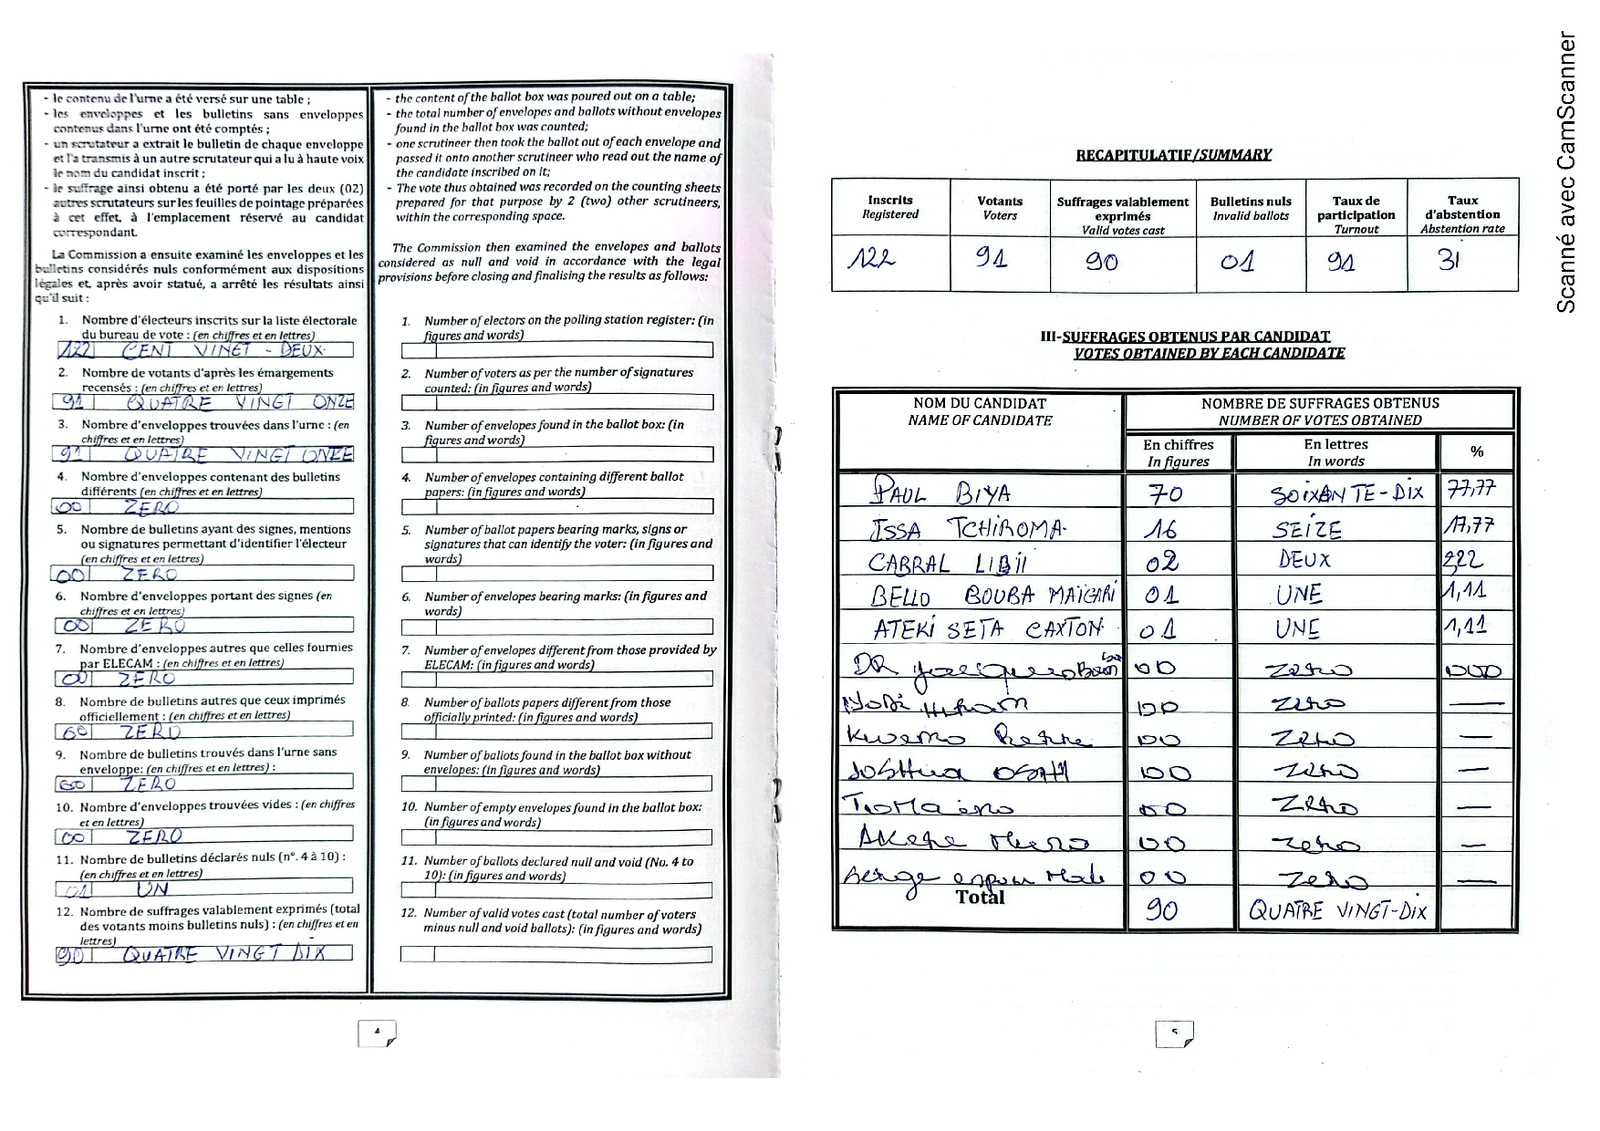 - le contenu de l'urne a été versé sur une table ;
- les enveloppes et les bulletins sans enveloppes
contenus dans l'urne ont été comptés ;
- un scrutateur a extrait le bulletin de chaque enveloppe
et l'a transmis à un autre scrutateur qui a lu à haute voix
le nom du candidat inscrit ;
- le suffrage ainsi obtenu a été porté par les deux (02)
autres scrutateurs sur les feuilles de pointage préparées
à cet effet, à l'emplacement réservé au candidat
correspondant.
La Commission a ensuite examiné les enveloppes et les
bulletins considérés nuls conformément aux dispositions
légales et, après avoir statué, a arrêté les résultats ainsi
qu'il suit :
1. Nombre d'électeurs inscrits sur la liste électorale
du bureau de vote : (en chiffres et en lettres)
122 CENT VINGT - DEUX
2. Nombre de votants d'après les émargements
recensés : (en chiffres et en lettres)
91 QUATRE VINGT ONZE
3. Nombre d'enveloppes trouvées dans l'urne : (en
chiffres et en lettres)
91 QUATRE VINGT ONZE
4. Nombre d'enveloppes contenant des bulletins
différents (en chiffres et en lettres)
00 ZERO
5. Nombre de bulletins ayant des signes, mentions
ou signatures permettant d'identifier l'électeur
(en chiffres et en lettres)
00 ZERO
6. Nombre d'enveloppes portant des signes (en
chiffres et en lettres)
00 ZERO
7. Nombre d'enveloppes autres que celles fournies
par ELECAM : (en chiffres et en lettres)
00 ZERO
8. Nombre de bulletins autres que ceux imprimés
officiellement : (en chiffres et en lettres)
00 ZERO
9. Nombre de bulletins trouvés dans l'urne sans
enveloppe: (en chiffres et en lettres) :
00 ZERO
10. Nombre d'enveloppes trouvées vides : (en chiffres
et en lettres)
00 ZERO
11. Nombre de bulletins déclarés nuls (n°. 4 à 10) :
(en chiffres et en lettres)
01 UN
12. Nombre de suffrages valablement exprimés (total
des votants moins bulletins nuls) : (en chiffres et en
lettres)
90 QUATRE VINGT DIX
- the content of the ballot box was poured out on a table;
- the total number of envelopes and ballots without envelopes
found in the ballot box was counted;
- one scrutineer then took the ballot out of each envelope and
passed it onto another scrutineer who read out the name of
the candidate inscribed on it;
- The vote thus obtained was recorded on the counting sheets
prepared for that purpose by 2 (two) other scrutineers,
within the corresponding space.
The Commission then examined the envelopes and ballots
considered as null and void in accordance with the legal
provisions before closing and finalising the results as follows:
1. Number of electors on the polling station register: (in
figures and words)
2. Number of voters as per the number of signatures
counted: (in figures and words)
3. Number of envelopes found in the ballot box: (in
figures and words)
4. Number of envelopes containing different ballot
papers: (in figures and words)
5. Number of ballot papers bearing marks, signs or
signatures that can identify the voter: (in figures and
words)
6. Number of envelopes bearing marks: (in figures and
words)
7. Number of envelopes different from those provided by
ELECAM: (in figures and words)
8. Number of ballots papers different from those
officially printed: (in figures and words)
9. Number of ballots found in the ballot box without
envelopes: (in figures and words)
10. Number of empty envelopes found in the ballot box:
(in figures and words)
11. Number of ballots declared null and void (No. 4 to
10): (in figures and words)
12. Number of valid votes cast (total number of voters
minus null and void ballots): (in figures and words)
4
RECAPITULATIF/SUMMARY
Inscrits Registered | Votants Voters | Suffrages valablement exprimés Valid votes cast | Bulletins nuls Invalid ballots | Taux de participation Turnout | Taux d'abstention Abstention rate
122 91 90 01 91 31
III-SUFFRAGES OBTENUS PAR CANDIDAT
VOTES OBTAINED BY EACH CANDIDATE
NOM DU CANDIDAT NOMBRE DE SUFFRAGES OBTENUS
NAME OF CANDIDATE NUMBER OF VOTES OBTAINED
En chiffres En lettres %
In figures In words
PAUL BIYA 70 SOIXANTE-DIX 77,77
ISSA TCHIROMA 16 SEIZE 17,77
CABRAL LIBII 02 DEUX 2,22
BELLO BOUBA MAÏGARI 01 UNE 1,11
ATEKI SETA CAXTON 01 UNE 1,11
DR 00 zero 000
Hiram 00 zero —
Kwemo 00 zero —
JOSHUA OSIH 00 zero —
Tomaino 00 zero —
AKere Muna 00 zero —
Serge espoir Mato 00 zero —
Total 90 QUATRE VINGT-DIX
5
Scanné avec CamScanner